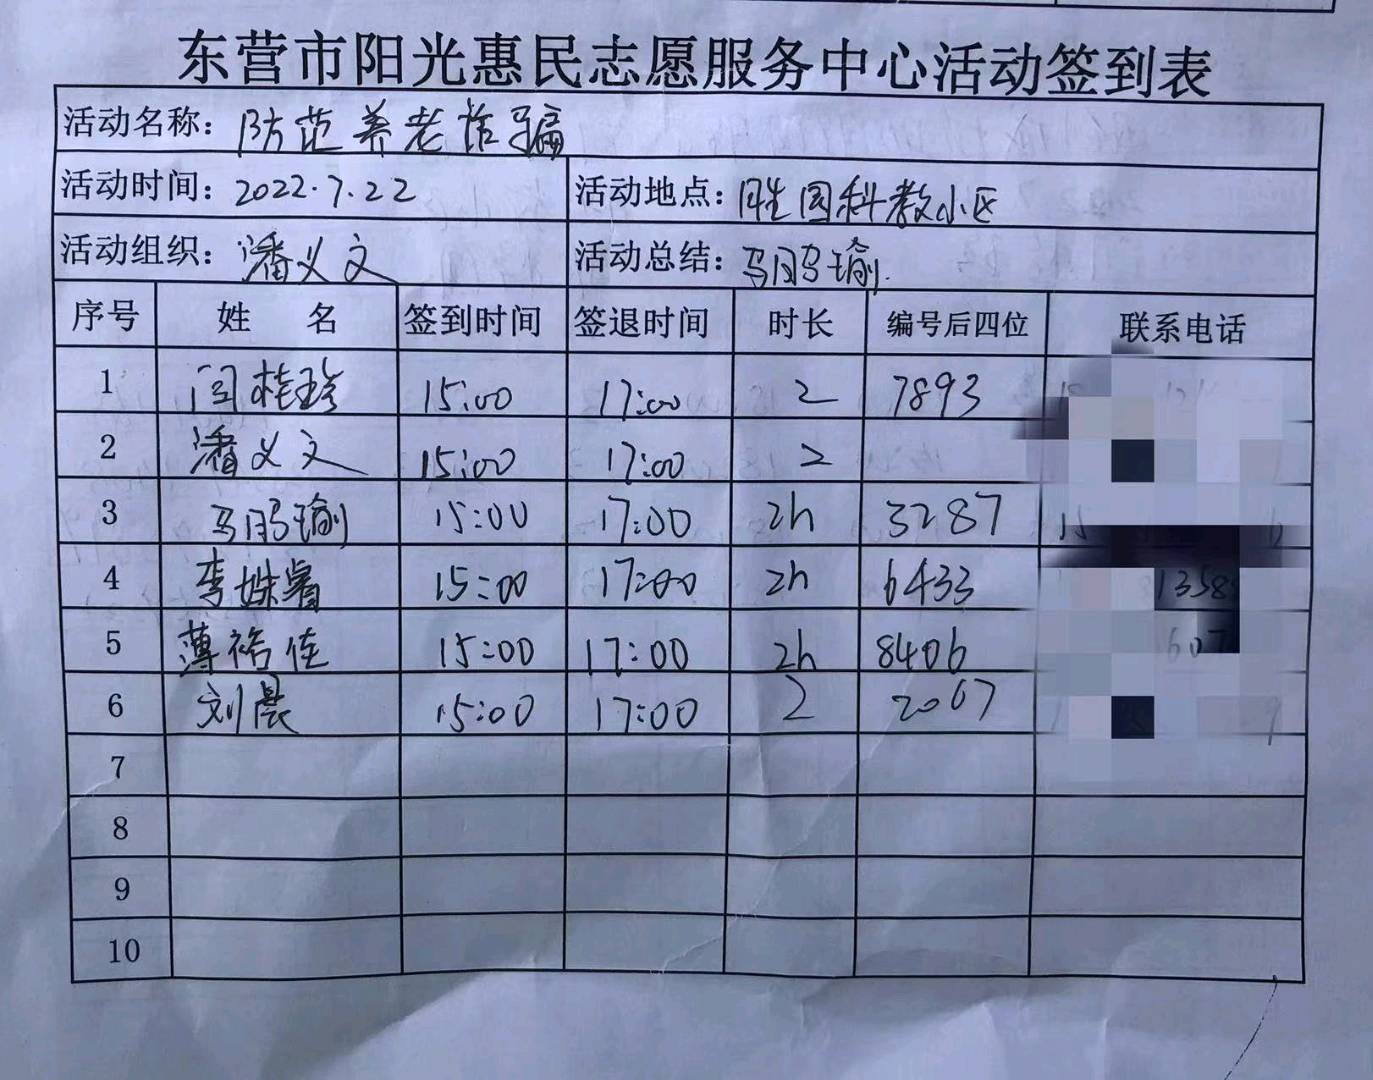 东营市阳光惠民志愿服务中心活动签到表
活动名称：防范养老诈骗
活动时间：2022.7.22 活动地点：胜园科教小区
活动组织：潘义文 活动总结：马鹛瑜
序号 姓名 签到时间 签退时间 时长 编号后四位 联系电话
1 闫桂珍 15:00 17:00 2 7893
2 潘义文 15:00 17:00 2
3 15:00 17:00 2h 3287
4 李姝睿 15:00 17:00 2h 6433
5 薄裕佳 15:00 17:00 2h 8406
6 刘晨 15:00 17:00 2 2067
7
8
9
10